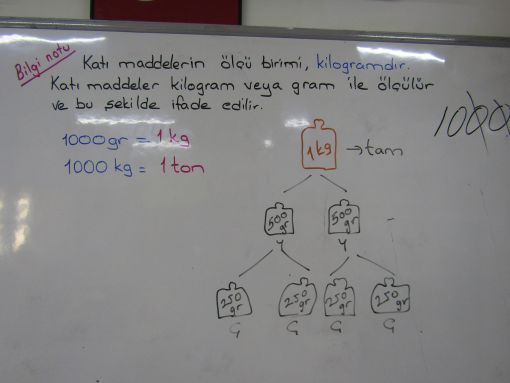 Bilgi notu
Katı maddelerin ölçü birimi, kilogramdır.
Katı maddeler kilogram veya gram ile ölçülür
ve bu şekilde ifade edilir.
1000
1000gr = 1kg
1000 kg = 1 ton
1kg → tam
500 gr 500 gr
Y Y
250 gr 250 gr 250 gr 250 gr
Ç Ç Ç Ç